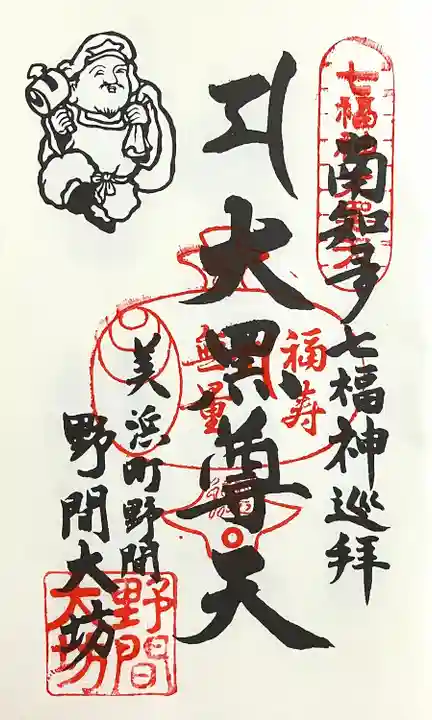 南知多七福神巡拝
大黒尊天
福寿
無量
美浜町野間
野間大坊
野間
大坊